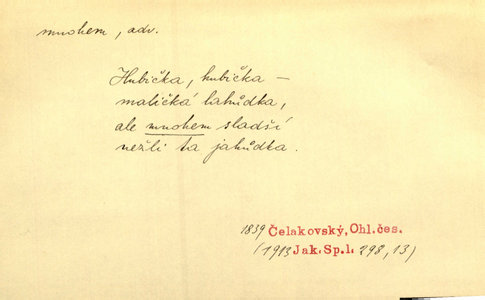 mnohem, adv.
Hubička, hubička –
maličká lahůdka,
ale mnohem sladší
nežli ta jahůdka.
1839 Čelakovský, Ohl. čes.
(1913 Jak. Sp. I. 298, 13)